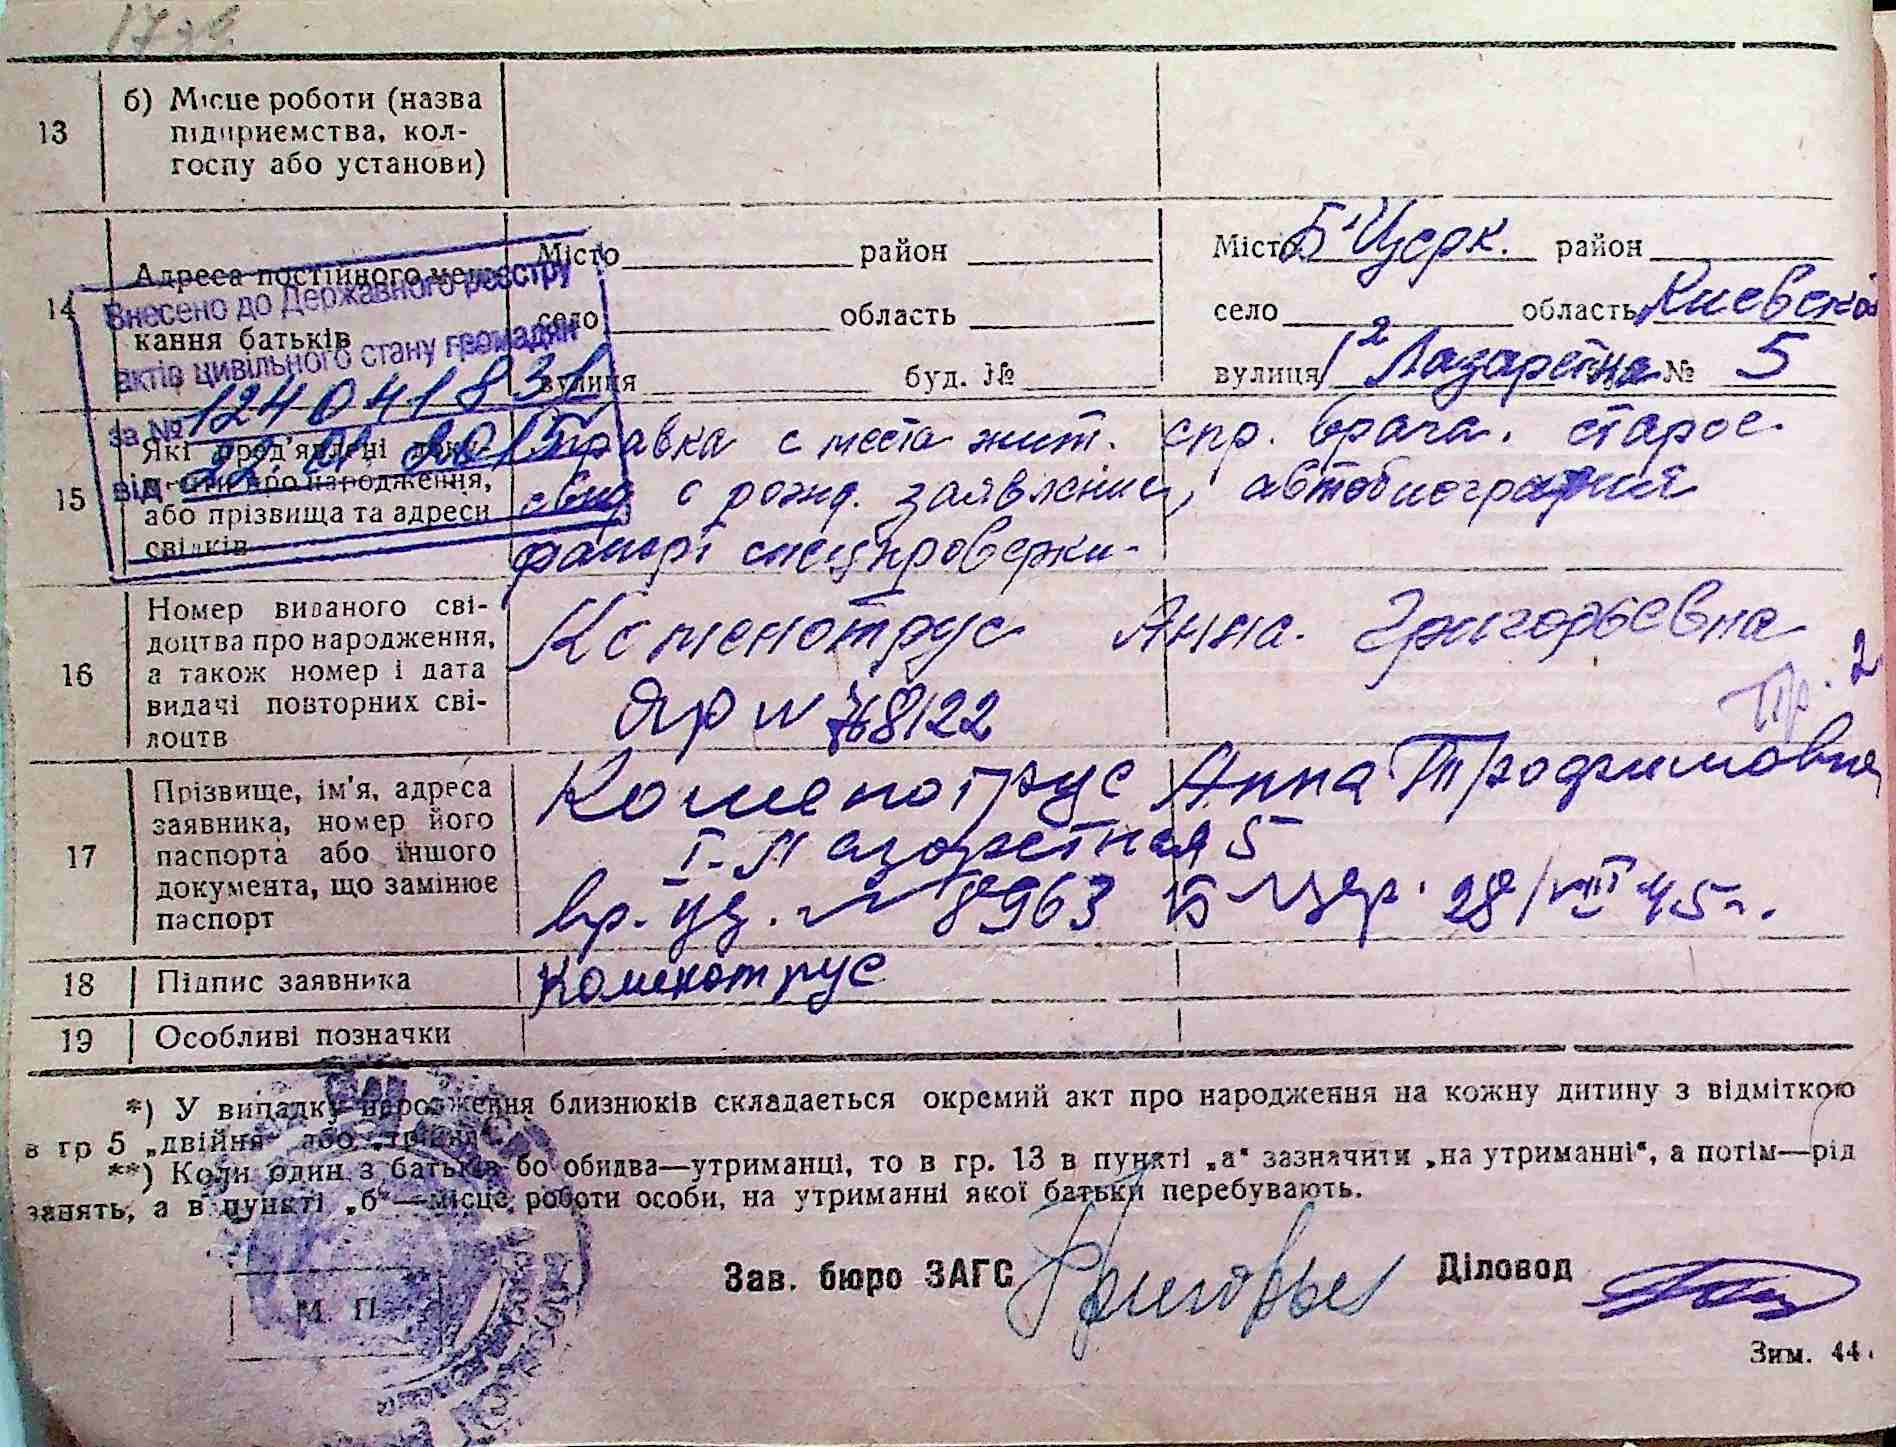 13
б) Місце роботи (назва
підприємства, кол-
госпу або установи)
14
Адреса постійного меш-
кання батьків
Місто район
село область
вулиця буд. №
Місто Б Церк. район
село область Киевской
вулиця 1² Лазаретна № 5
Внесено до Державного реєстру
актів цивільного стану громадян
за № 124041831
від 22. 01. 2015
15
Які пред'явлені доку-
менти про народження,
або прізвища та адреси
свідків
Справка с места жит. спр. врача. старое
свид о рожд. заявление, автобиография
спецпроверки.
16
Номер виданого сві-
доцтва про народження,
а також номер і дата
видачі повторних сві-
доцтв
Коменотрус Анна. Григорьевна
ЯР № 78122
Пр. 2
17
Прізвище, ім'я, адреса
заявника, номер його
паспорта або іншого
документа, що замінює
паспорт
Коменотрус Анна Трофимовна
I-Лазаретная 5
вр. уд. № 8963 Б Цер. 28/VIII 45 г.
18
Підпис заявника
Коменотрус
19
Особливі позначки
*) У випадку народження близнюків складається окремий акт про народження на кожну дитину з відміткою
в гр 5 „двійня" або „трійня".
**) Коли один з батьків бо обидва—утриманці, то в гр. 13 в пункті „а" зазначити „на утриманні", а потім—рід
занять, а в пункті „б"—місце роботи особи, на утриманні якої батьки перебувають.
М. П.
Зав. бюро ЗАГС
Діловод
Зим. 44